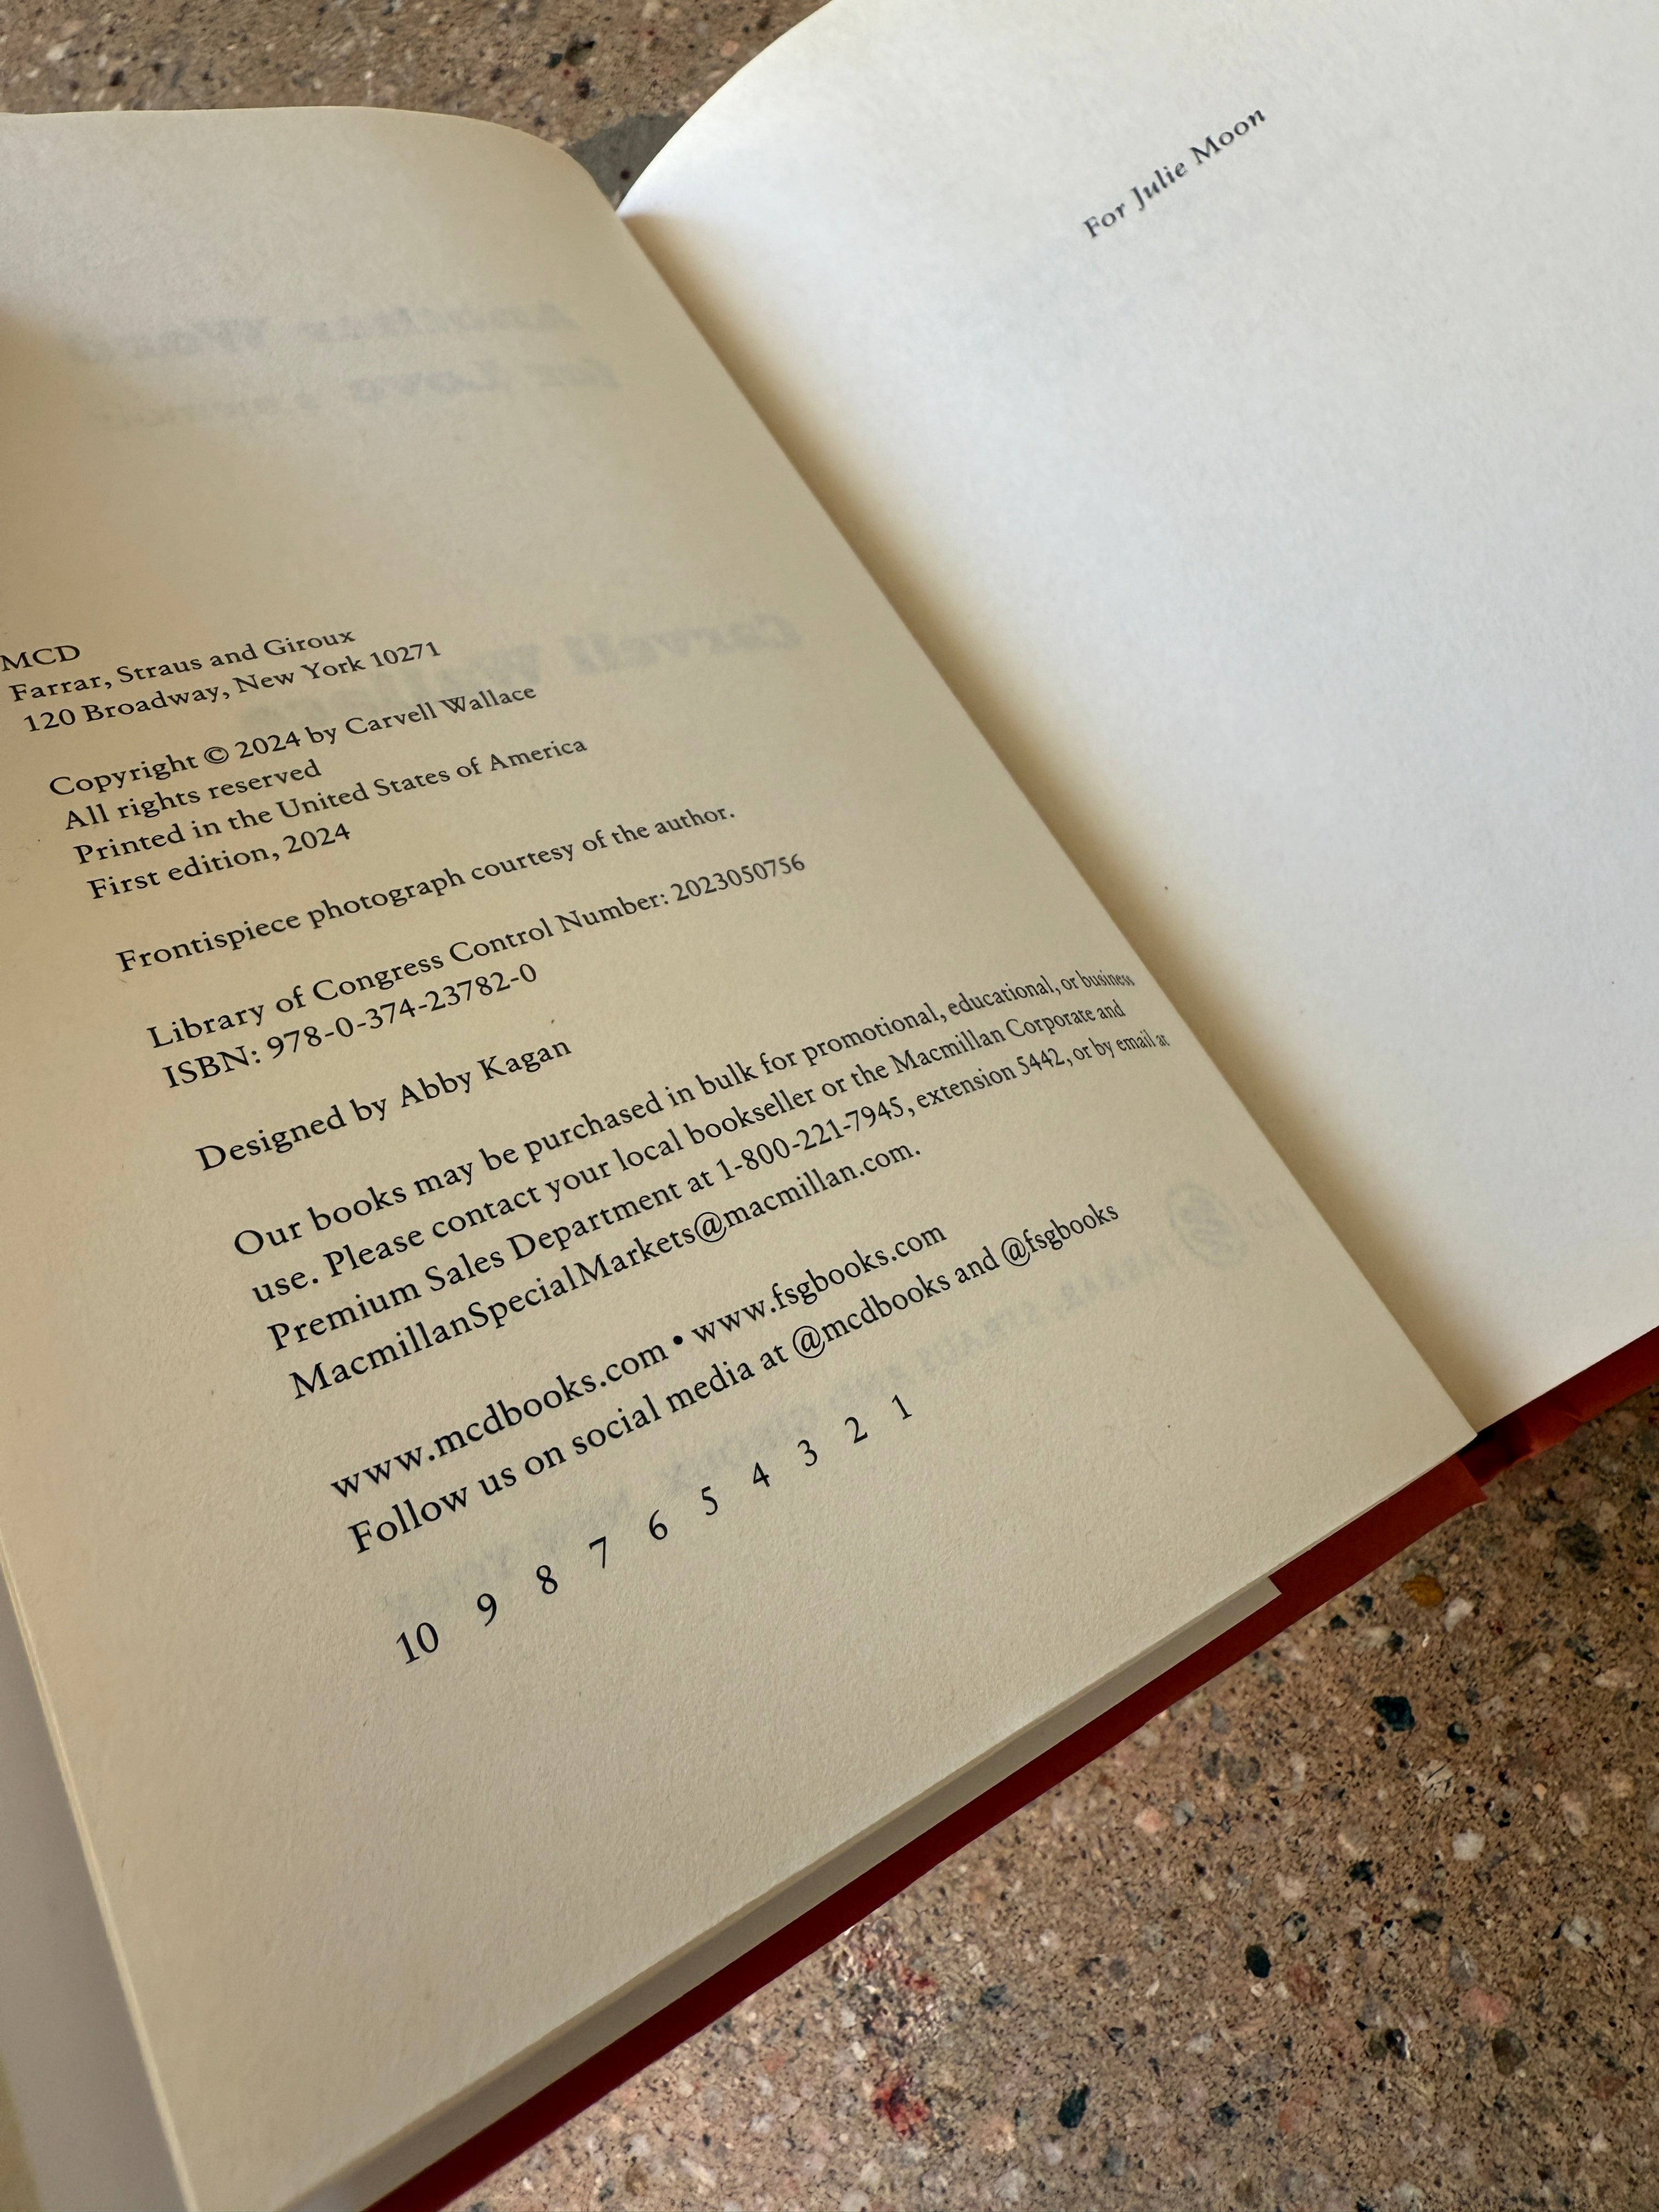 MCD
Farrar, Straus and Giroux
120 Broadway, New York 10271
Copyright © 2024 by Carvell Wallace
All rights reserved
Printed in the United States of America
First edition, 2024
Frontispiece photograph courtesy of the author.
Library of Congress Control Number: 2023050756
ISBN: 978-0-374-23782-0
Designed by Abby Kagan
Our books may be purchased in bulk for promotional, educational, or business
use. Please contact your local bookseller or the Macmillan Corporate and
Premium Sales Department at 1-800-221-7945, extension 5442, or by email at
MacmillanSpecialMarkets@macmillan.com.
www.mcdbooks.com • www.fsgbooks.com
Follow us on social media at @mcdbooks and @fsgbooks
10 9 8 7 6 5 4 3 2 1
For Julie Moon